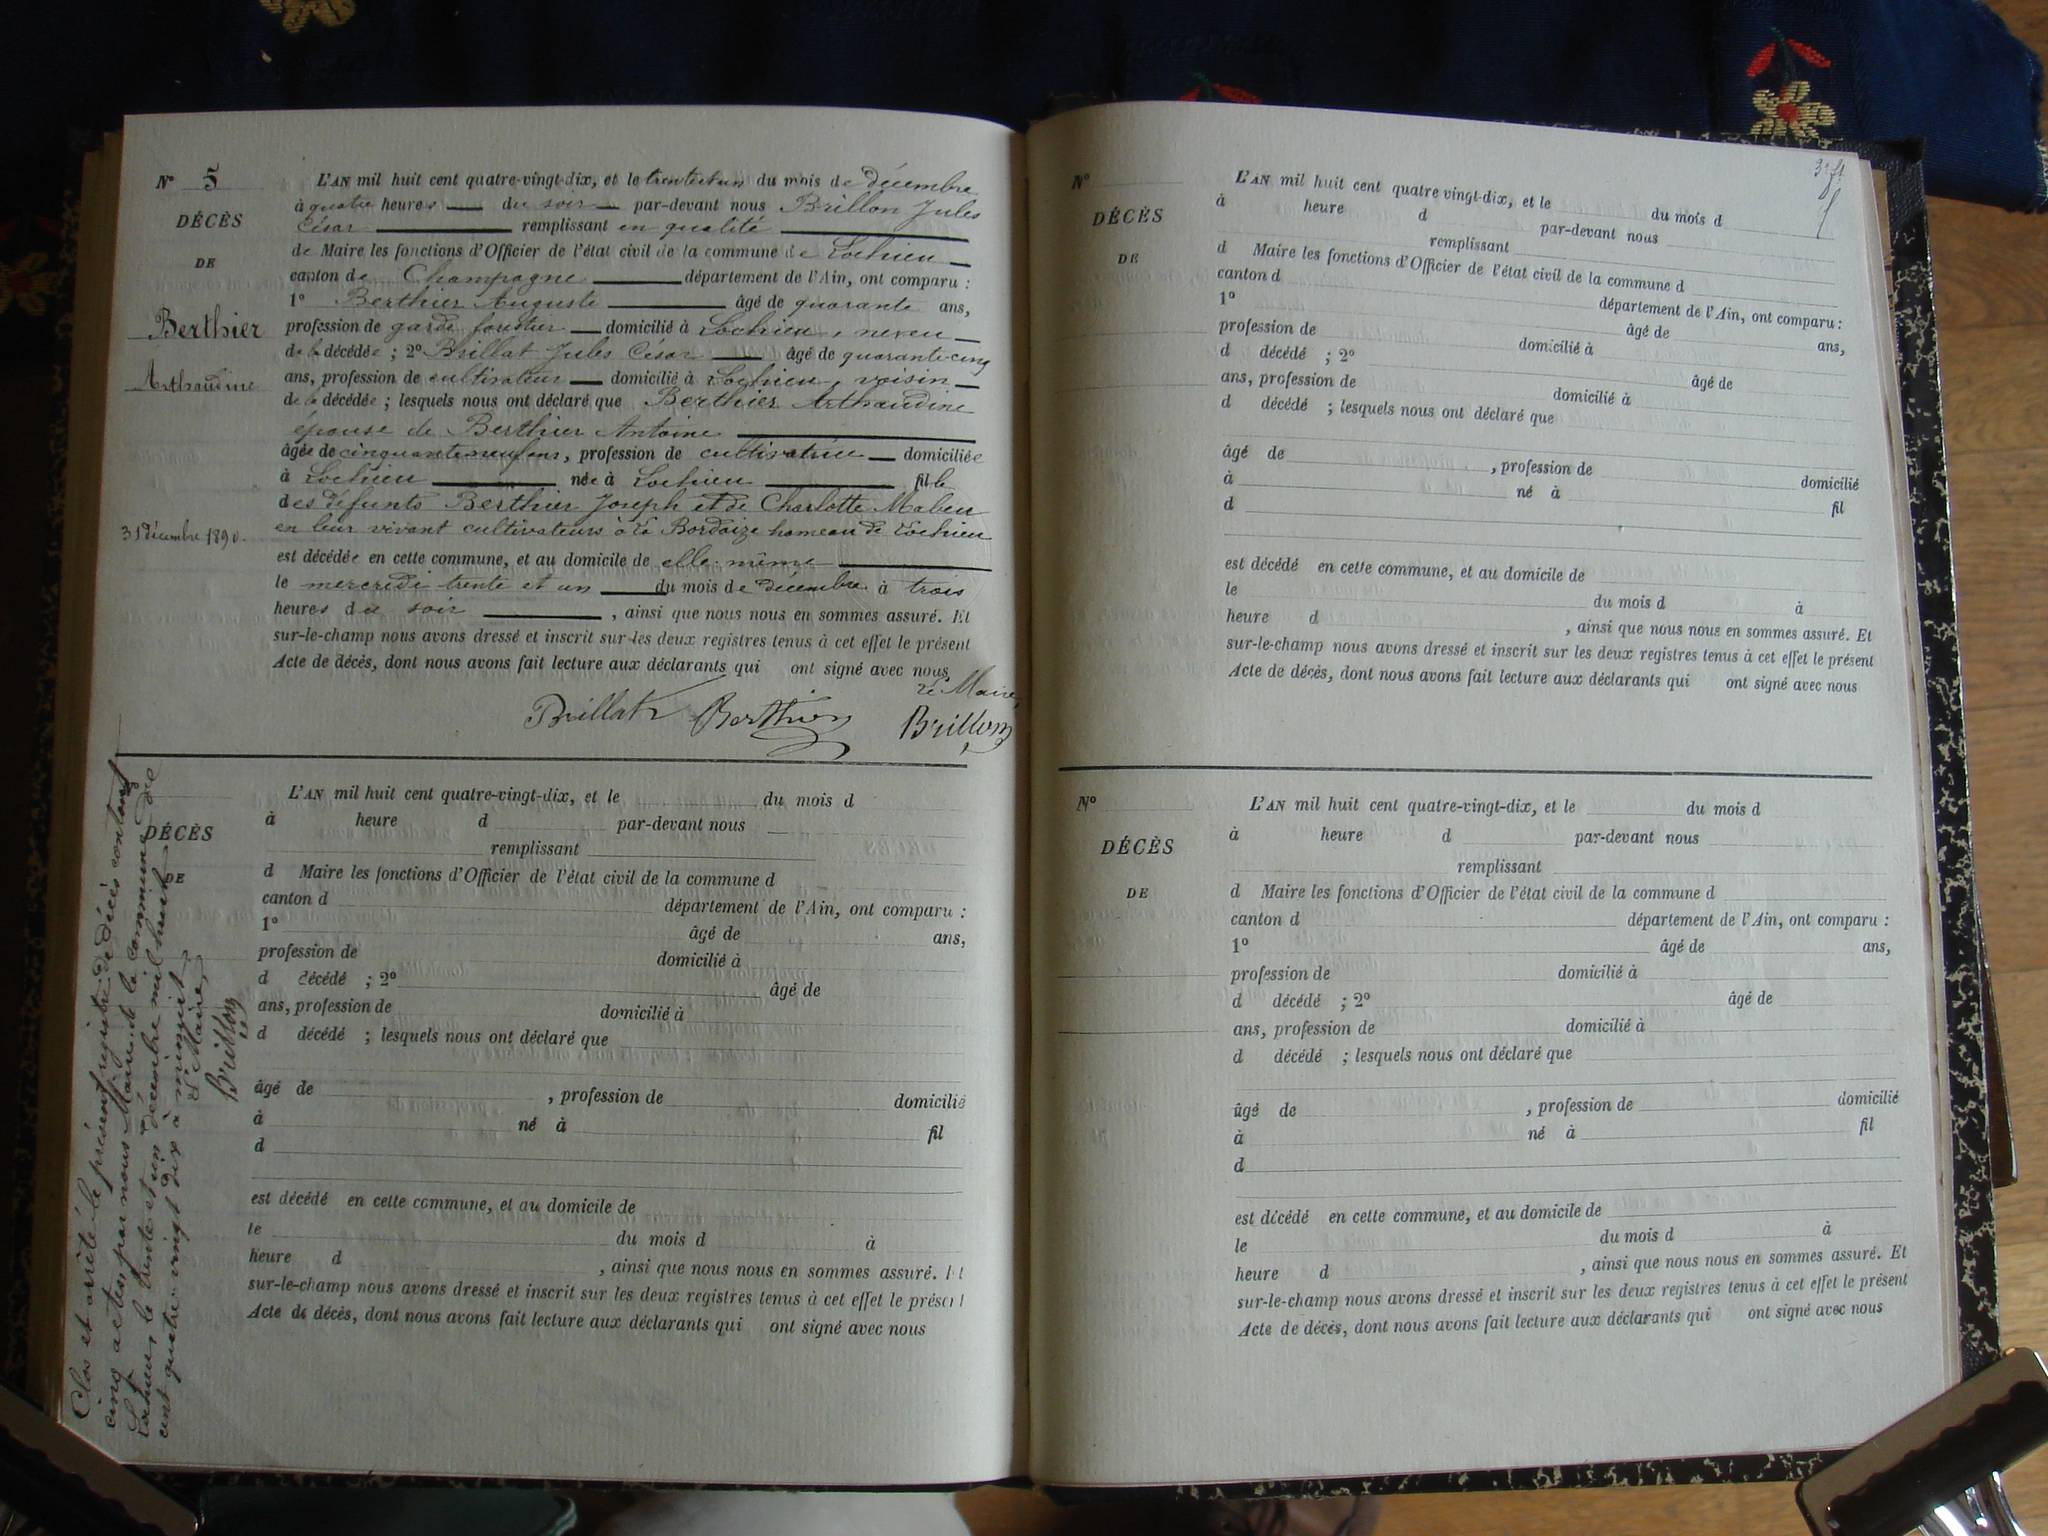 N° 5
DÉCÈS
DE
Berthier
Arthaudine
31 décembre 1890.
L'AN mil huit cent quatre-vingt-dix, et le trente et un du mois de décembre
à quatre heures du soir par-devant nous Brillon Jules
César remplissant en qualité
de Maire les fonctions d'Officier de l'état civil de la commune de Lochieu
canton de Champagne département de l'Ain, ont comparu :
1° Berthier Auguste âgé de quarante ans,
profession de garde forestier domicilié à Lochieu, neveu
de la décédée ; 2° Brillat Jules César âgé de quarante-cinq
ans, profession de cultivateur domicilié à Lochieu, voisin
de la décédée ; lesquels nous ont déclaré que Berthier Arthaudine
épouse de Berthier Antoine
âgée de cinquante neuf ans, profession de cultivatrice domiciliée
à Lochieu née à Lochieu fille
des défunts Berthier Joseph et de Charlotte
en leur vivant cultivateurs à la Bordaize hameau de Lochieu
est décédée en cette commune, et au domicile de elle-même
le mercredi trente et un du mois de décembre à trois
heures du soir , ainsi que nous nous en sommes assuré. Et
sur-le-champ nous avons dressé et inscrit sur les deux registres tenus à cet effet le présent
Acte de décès, dont nous avons fait lecture aux déclarants qui ont signé avec nous
le Maire,
Brillat Berthier Brillon
Clos et arrêté le présent registre de décès contenant
cinq actes par nous Maire de la commune de
Lochieu, le trente et un décembre mil huit
cent quatre-vingt dix à minuit
le Maire,
Brillon
DÉCÈS
DE
L'AN mil huit cent quatre-vingt-dix, et le du mois d
à heure d par-devant nous
remplissant
d Maire les fonctions d'Officier de l'état civil de la commune d
canton d département de l'Ain, ont comparu :
1° âgé de ans,
profession de domicilié à
d décédé ; 2° âgé de
ans, profession de domicilié à
d décédé ; lesquels nous ont déclaré que
âgé de , profession de domicilié
à né à fil
d
est décédé en cette commune, et au domicile de
le du mois d à
heure d , ainsi que nous nous en sommes assuré. Et
sur-le-champ nous avons dressé et inscrit sur les deux registres tenus à cet effet le présent
Acte de décès, dont nous avons fait lecture aux déclarants qui ont signé avec nous
N°
DÉCÈS
DE
L'AN mil huit cent quatre vingt-dix, et le du mois d
à heure d par-devant nous
remplissant
d Maire les fonctions d'Officier de l'état civil de la commune d
canton d département de l'Ain, ont comparu :
1° âgé de ans,
profession de domicilié à
d décédé ; 2° âgé de
ans, profession de domicilié à
d décédé ; lesquels nous ont déclaré que
âgé de , profession de domicilié
à né à fil
d
est décédé en cette commune, et au domicile de
le du mois d à
heure d , ainsi que nous nous en sommes assuré. Et
sur-le-champ nous avons dressé et inscrit sur les deux registres tenus à cet effet le présent
Acte de décès, dont nous avons fait lecture aux déclarants qui ont signé avec nous
N°
DÉCÈS
DE
L'AN mil huit cent quatre-vingt-dix, et le du mois d
à heure d par-devant nous
remplissant
d Maire les fonctions d'Officier de l'état civil de la commune d
canton d département de l'Ain, ont comparu :
1° âgé de ans,
profession de domicilié à
d décédé ; 2° âgé de
ans, profession de domicilié à
d décédé ; lesquels nous ont déclaré que
âgé de , profession de domicilié
à né à fil
d
est décédé en cette commune, et au domicile de
le du mois d à
heure d , ainsi que nous nous en sommes assuré. Et
sur-le-champ nous avons dressé et inscrit sur les deux registres tenus à cet effet le présent
Acte de décès, dont nous avons fait lecture aux déclarants qui ont signé avec nous